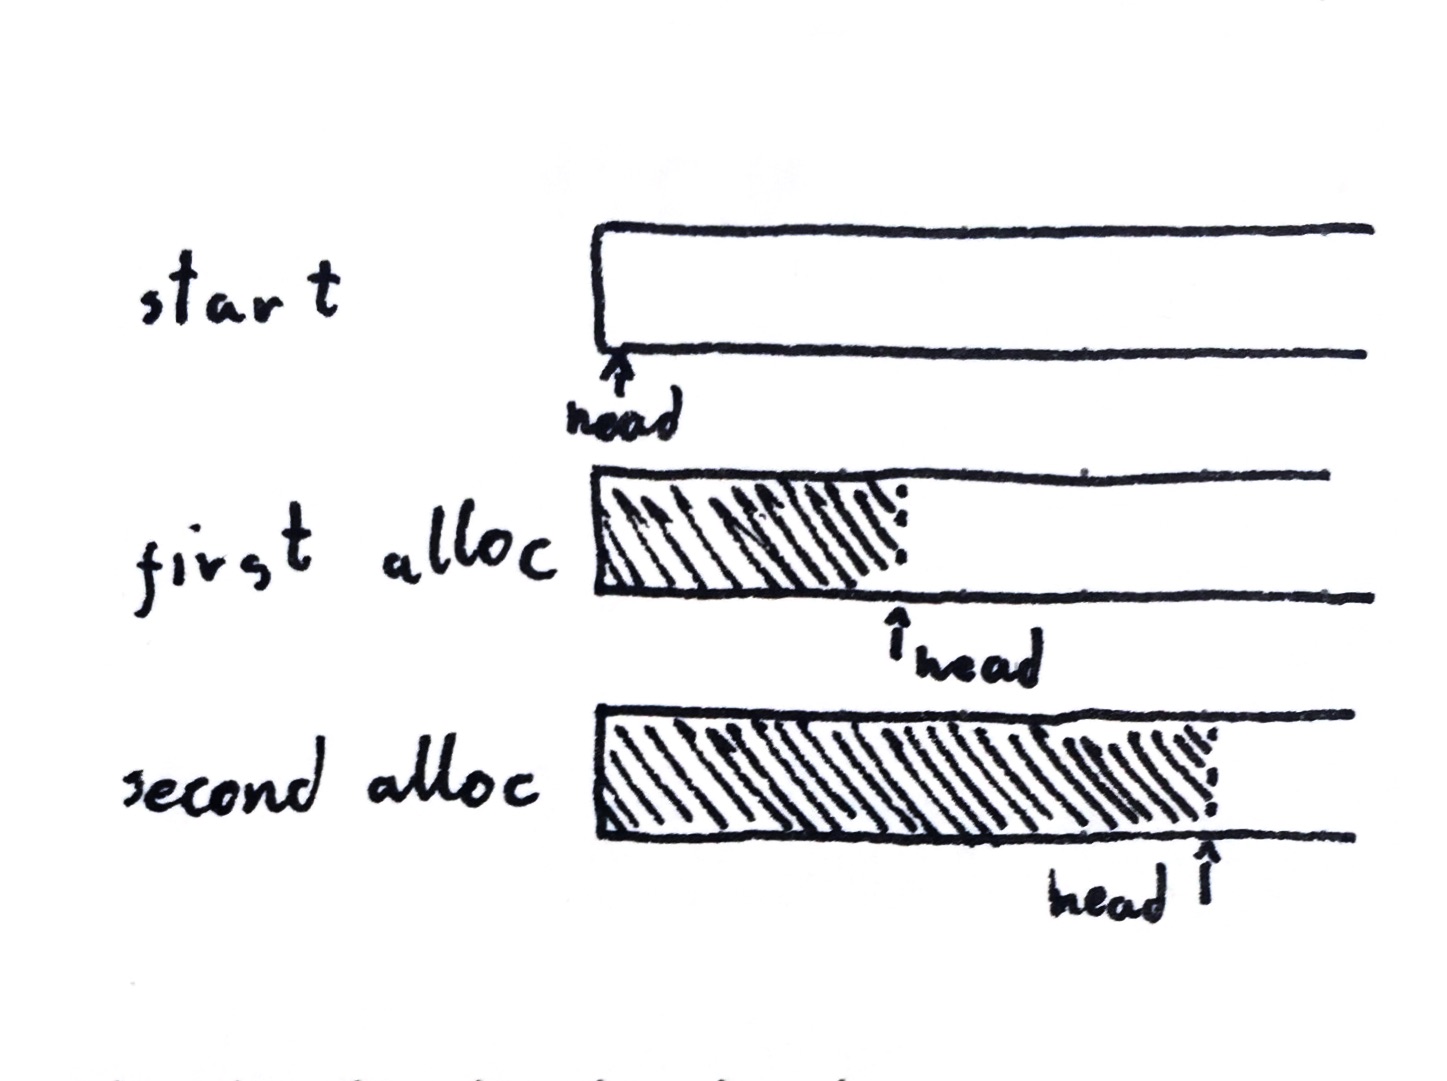 start
head
first alloc
head
second alloc
head